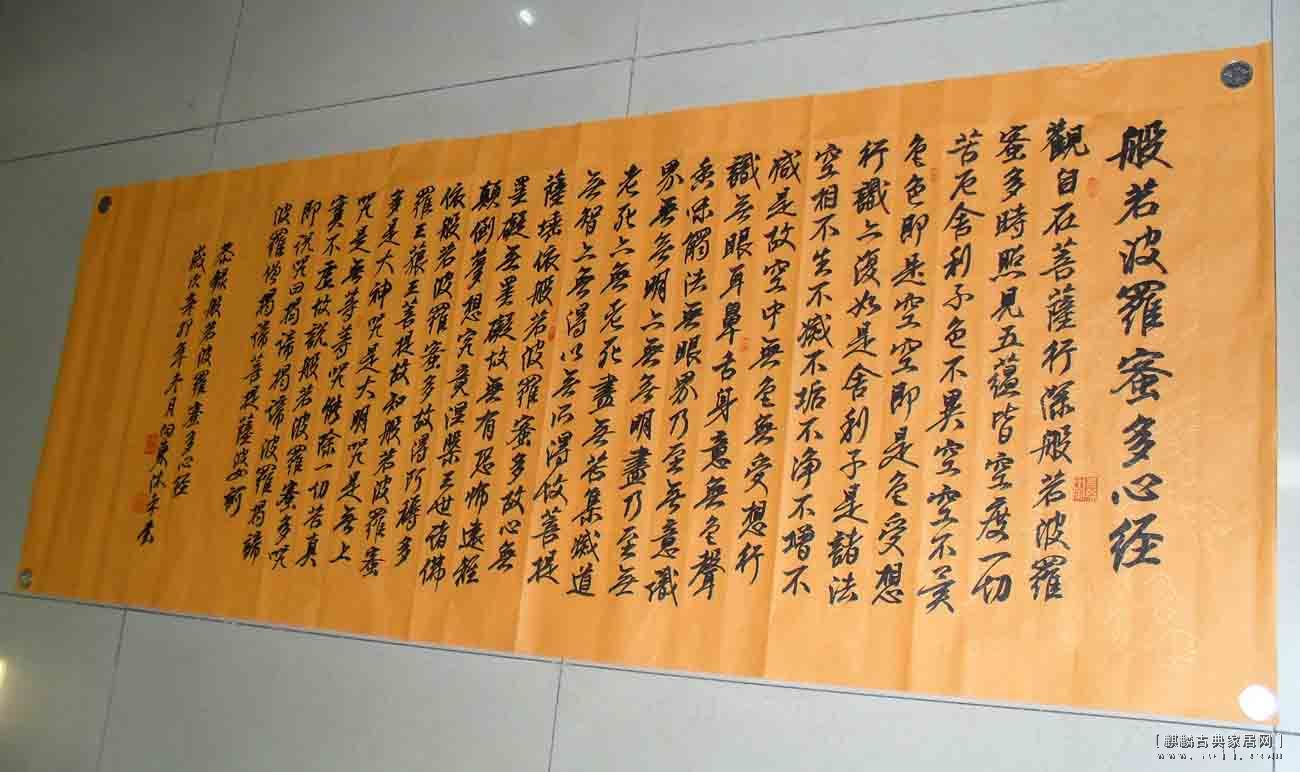 般若波羅蜜多心经
觀自在菩薩行深般若波羅
蜜多時照見五蘊皆空度一切
苦厄舍利子色不異空空不異
色色即是空空即是色受想
行識亦復如是舍利子是諸法
空相不生不滅不垢不净不增不
减是故空中無色無受想行
識無眼耳鼻舌身意無色聲
香味觸法無眼界乃至無意識
界無無明亦無無明盡乃至無
老死亦無老死盡無苦集滅道
無智亦無得以無所得故菩提
薩埵依般若波羅蜜多故心無
罣礙无罣礙故無有恐怖遠離
顛倒夢想究竟涅槃三世諸佛
依般若波羅蜜多故得阿耨多
羅三藐三菩提故知般若波羅蜜
多是大神咒是大明咒是無上
咒是無等等咒能除一切苦真
實不虛故說般若波羅蜜多咒
即说咒曰揭諦揭諦波羅揭諦
波羅僧揭諦菩提薩婆訶
恭録般若波羅蜜多心经
歲次辛卯年冬月
[麒麟古典家居网]